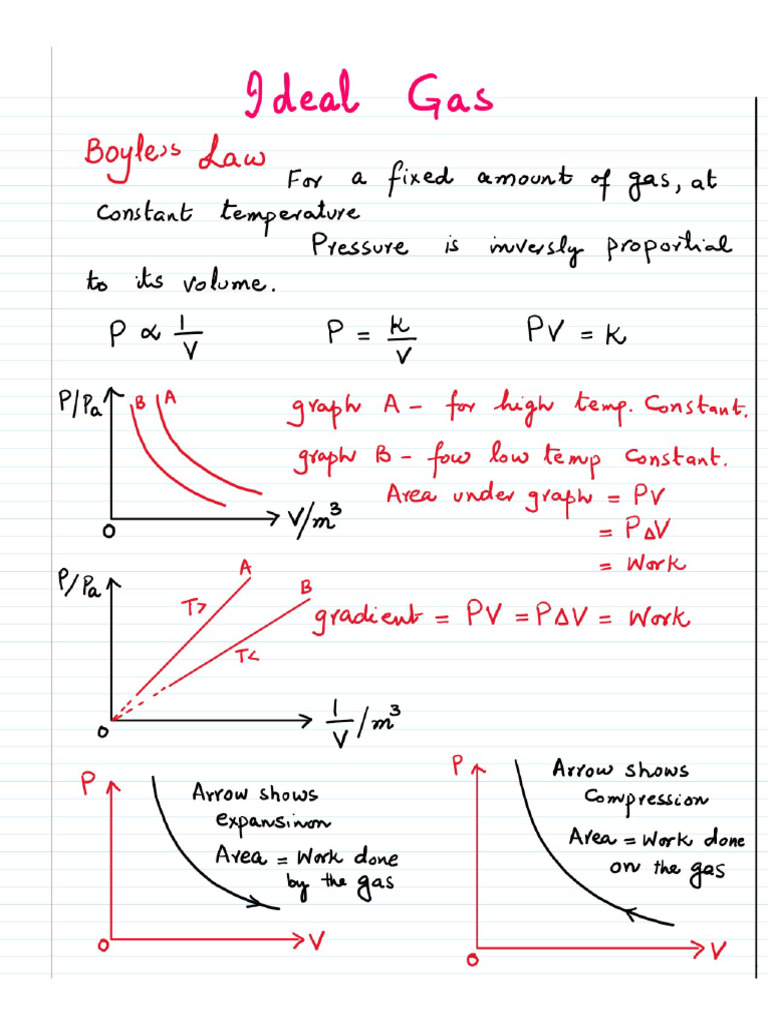 Ideal Gas
Boyle's Law
For a fixed amount of gas, at
constant temperature
Pressure is inversly proportial
to its volume.
P ∝ 1/V P = K/V PV = K
P/Pa B A
graph A - for high temp. Constant.
graph B - fow low temp Constant.
Area under graph = PV
= P∆V
= Work
0 V/m³
P/Pa A B
T>
T<
gradient = PV = P∆V = Work
0 1/V /m³
P
Arrow shows
expansinon
Area = Work done
by the gas
0 V
P
Arrow shows
Compression
Area = Work done
on the gas
0 V